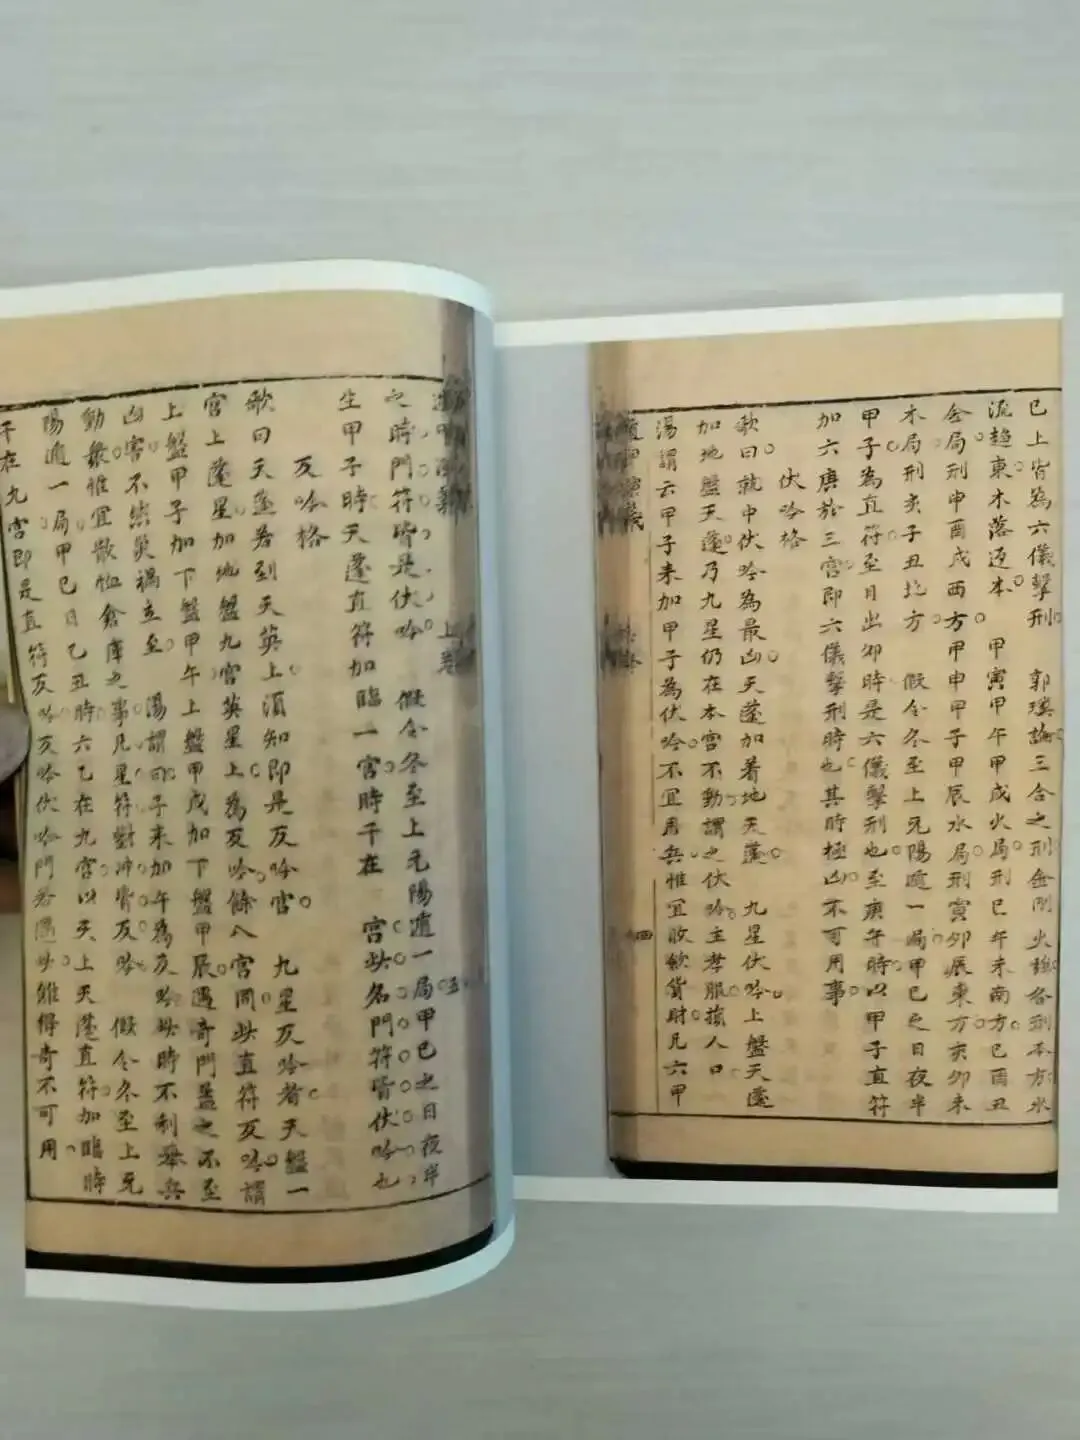 已上皆為六儀擊刑 郭璞論三合之刑金剛火強各刑本方水
流趨東木落返本 甲寅甲午甲戌火局刑巳午未南方巳酉丑
金局刑申酉戌西方甲申甲子甲辰水局刑寅卯辰東方亥卯未
木局刑亥子丑北方 假令冬至上元陽遁一局甲己之日夜半
甲子為直符至日出卯時是六儀擊刑也至庚午時以甲子直符
加六庚於三宮即六儀擊刑時也其時極凶不可用事
伏吟格
歌曰就中伏吟為最凶天蓬加着地天蓬 九星伏吟上盤天蓬
加地盤天蓬乃九星仍在本宮不動謂之伏吟主孝服損人口
湯謂云甲子來加甲子為伏吟不宜用兵惟宜收斂貨財凡六甲
遁甲演義
四
上卷
五
之時門符皆是伏吟 假令冬至上元陽遁一局甲己之日夜半
生甲子時天蓬直符加臨一宮時干在 宮此名門符皆伏吟也
反吟格
歌曰天蓬若到天英上須知即是反吟宮 九星反吟者天盤一
宮上蓬星加地盤九宮英星上為反吟餘八宮同此直符反吟謂
上盤甲子加下盤甲午上盤甲戌加下盤甲辰遇奇門蓋之不至
凶害不然災禍立至 湯謂曰子來加午為反吟此時不利舉兵
動衆惟宜散恤倉庫之事凡星符對冲皆反吟 假令冬至上元
陽遁一局甲己日乙丑時六乙在九宮以天上天蓬直符加臨時
干在九宮即是直符反吟反吟伏吟門若遇此雖得奇不可用